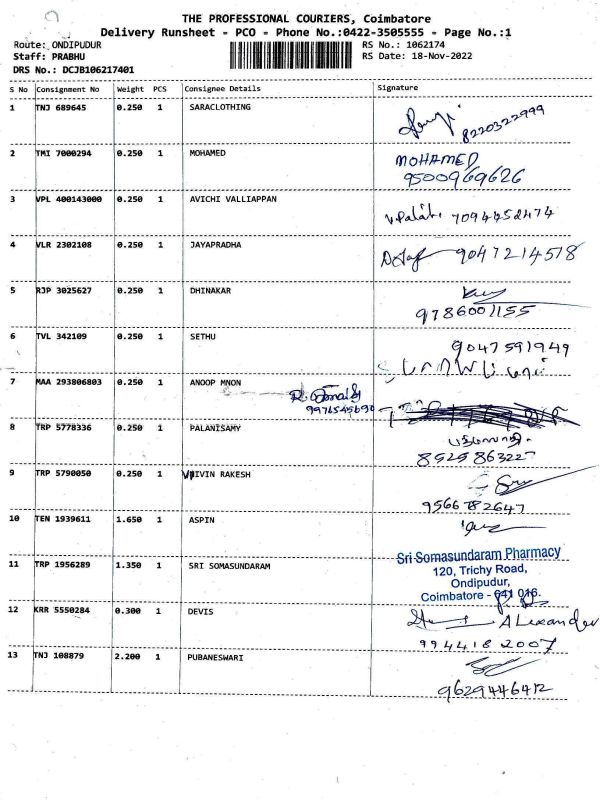 THE PROFESSIONAL COURIERS, Coimbatore
Delivery Runsheet - PCO - Phone No.:0422-3505555 - Page No.:1
Route: ONDIPUDUR RS No.: 1062174
Staff: PRABHU RS Date: 18-Nov-2022
DRS No.: DCJB106217401
S No Consignment No Weight PCS Consignee Details Signature
1 TNJ 689645 0.250 1 SARACLOTHING
8220322999
2 TMI 7000294 0.250 1 MOHAMED MOHAMED
9500969626
3 VPL 400143000 0.250 1 AVICHI VALLIAPPAN
7094452474
4 VLR 2302108 0.250 1 JAYAPRADHA 9047214518
5 RJP 3025627 0.250 1 DHINAKAR
9786001155
6 TVL 342109 0.250 1 SETHU 9047591949
7 MAA 293806803 0.250 1 ANOOP MNON
8 TRP 5778336 0.250 1 PALANISAMY
8925863227
9 TRP 5790050 0.250 1 VIVIN RAKESH
9566782647
10 TEN 1939611 1.650 1 ASPIN
11 TRP 1956289 1.350 1 SRI SOMASUNDARAM Sri Somasundaram Pharmacy
120, Trichy Road,
Ondipudur,
Coimbatore - 641 016.
12 KRR 5550284 0.300 1 DEVIS Alexander
9944182007
13 TNJ 108879 2.200 1 PUBANESWARI
9629446412